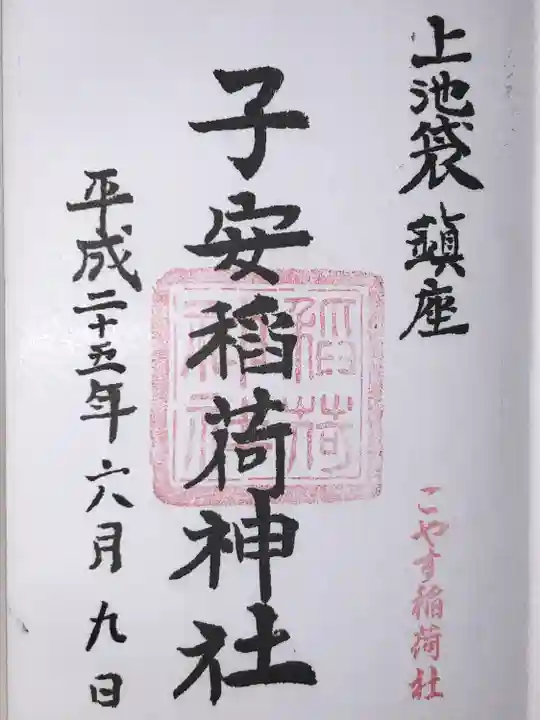 上池袋鎮座
こやす稲荷社
子安稲荷神社
稲荷神社
平成二十五年六月九日